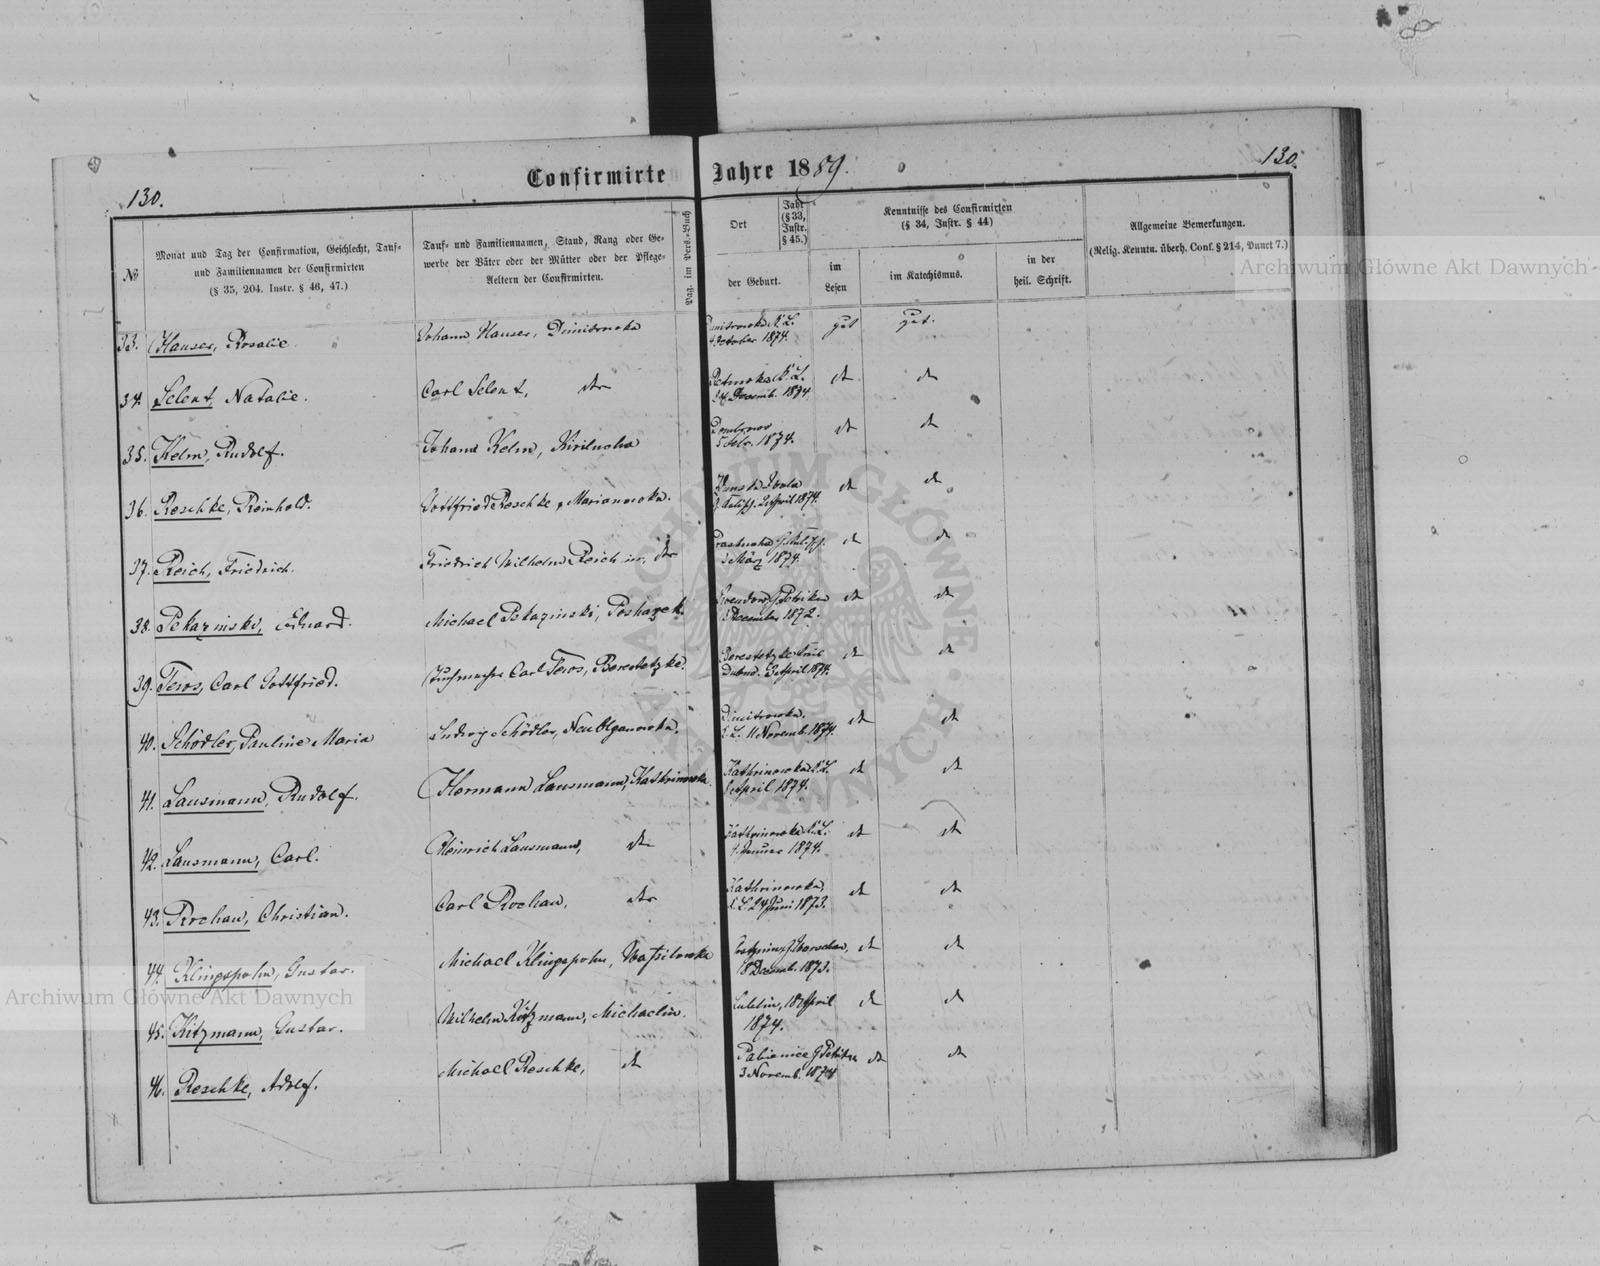 130.
Confirmirte Jahre 1889.
130.
№
Monat und Tag der Confirmation, Geschlecht, Tauf-
und Familiennamen der Confirmirten
(§ 35, 204. Instr. § 46, 47.)
Tauf- und Familiennamen, Stand, Rang oder Ge-
werbe der Väter oder der Mütter oder der Pflege-
Aeltern der Confirmirten.
Pag. im Pers.-Buch
Ort
Jahr
(§ 33,
Instr.
§ 45.)
der Geburt.
Kenntnisse des Confirmirten
(§ 34, Instr. § 44)
im
Lesen
im Katechismus.
in der
heil. Schrift.
Allgemeine Bemerkungen.
(Relig. Kenntn. überh. Conf. § 214, Punct 7.)
Archiwum Główne Akt Dawnych
33. Hauser, Rosalie
Johann Hauser, Dimitrowka
Dimitrowka K. L.
October 1874.
gut
gut.
34. Selent, Natalie.
Carl Selent, dto
K. L.
Decemb. 1874
dt
dt
35. Kelm, Rudolf.
Johann Kelm, Kirilucha
Dombrow
5 Febr. 1874.
dt
dt
36. Reschke, Reinhold.
Gottfried Reschke, Marianowka.
Wola
G. Kalisch. April 1874.
dt
dt
37. Reich, Friedrich.
Friedrich Wilhelm Reich dto
März 1874.
dt
dt
38. Pekazinski, Eduard.
Michael Pekazinski,
December 1872.
dt
dt
39. Teros, Carl Gottfried.
Tuchmacher Carl Teros, Berestetzke.
Berestetzke Kreis
Dubno. 3 April 1874.
dt
dt
40. Schödler, Pauline Maria
Ludwig Schödler, Neu Olganowka.
Dimitrowka.
K. L. 11 Novemb. 1874.
dt
dt
41. Lausmann, Rudolf.
Hermann Lausmann, Kathrinowka
Kathrinowka K. L.
April 1874.
dt
dt
42. Lausmann, Carl.
Heinrich Lausmann, dto
Kathrinowka K. L.
Januar 1874.
dt
dt
43. Rochau, Christian.
Carl Rochau, dto
Kathrinowka,
K. L. 24 Juni 1873.
dt
dt
44. Klingspohn, Gustav.
Michael Klingspohn, Wassilowka
G. Warschau,
18 Decemb. 1873.
dt
dt
45. Kitzmann, Gustav.
Wilhelm Kitzmann, Michaelin.
Lublin, 18 April
1874.
dt
dt
46. Reschke, Adolf.
Michael Reschke, dt
Pabianice G. Petrikau
3 Novemb. 1874
dt
dt
ARCHIWUM GŁÓWNE AKT DAWNYCH
Archiwum Główne Akt Dawnych